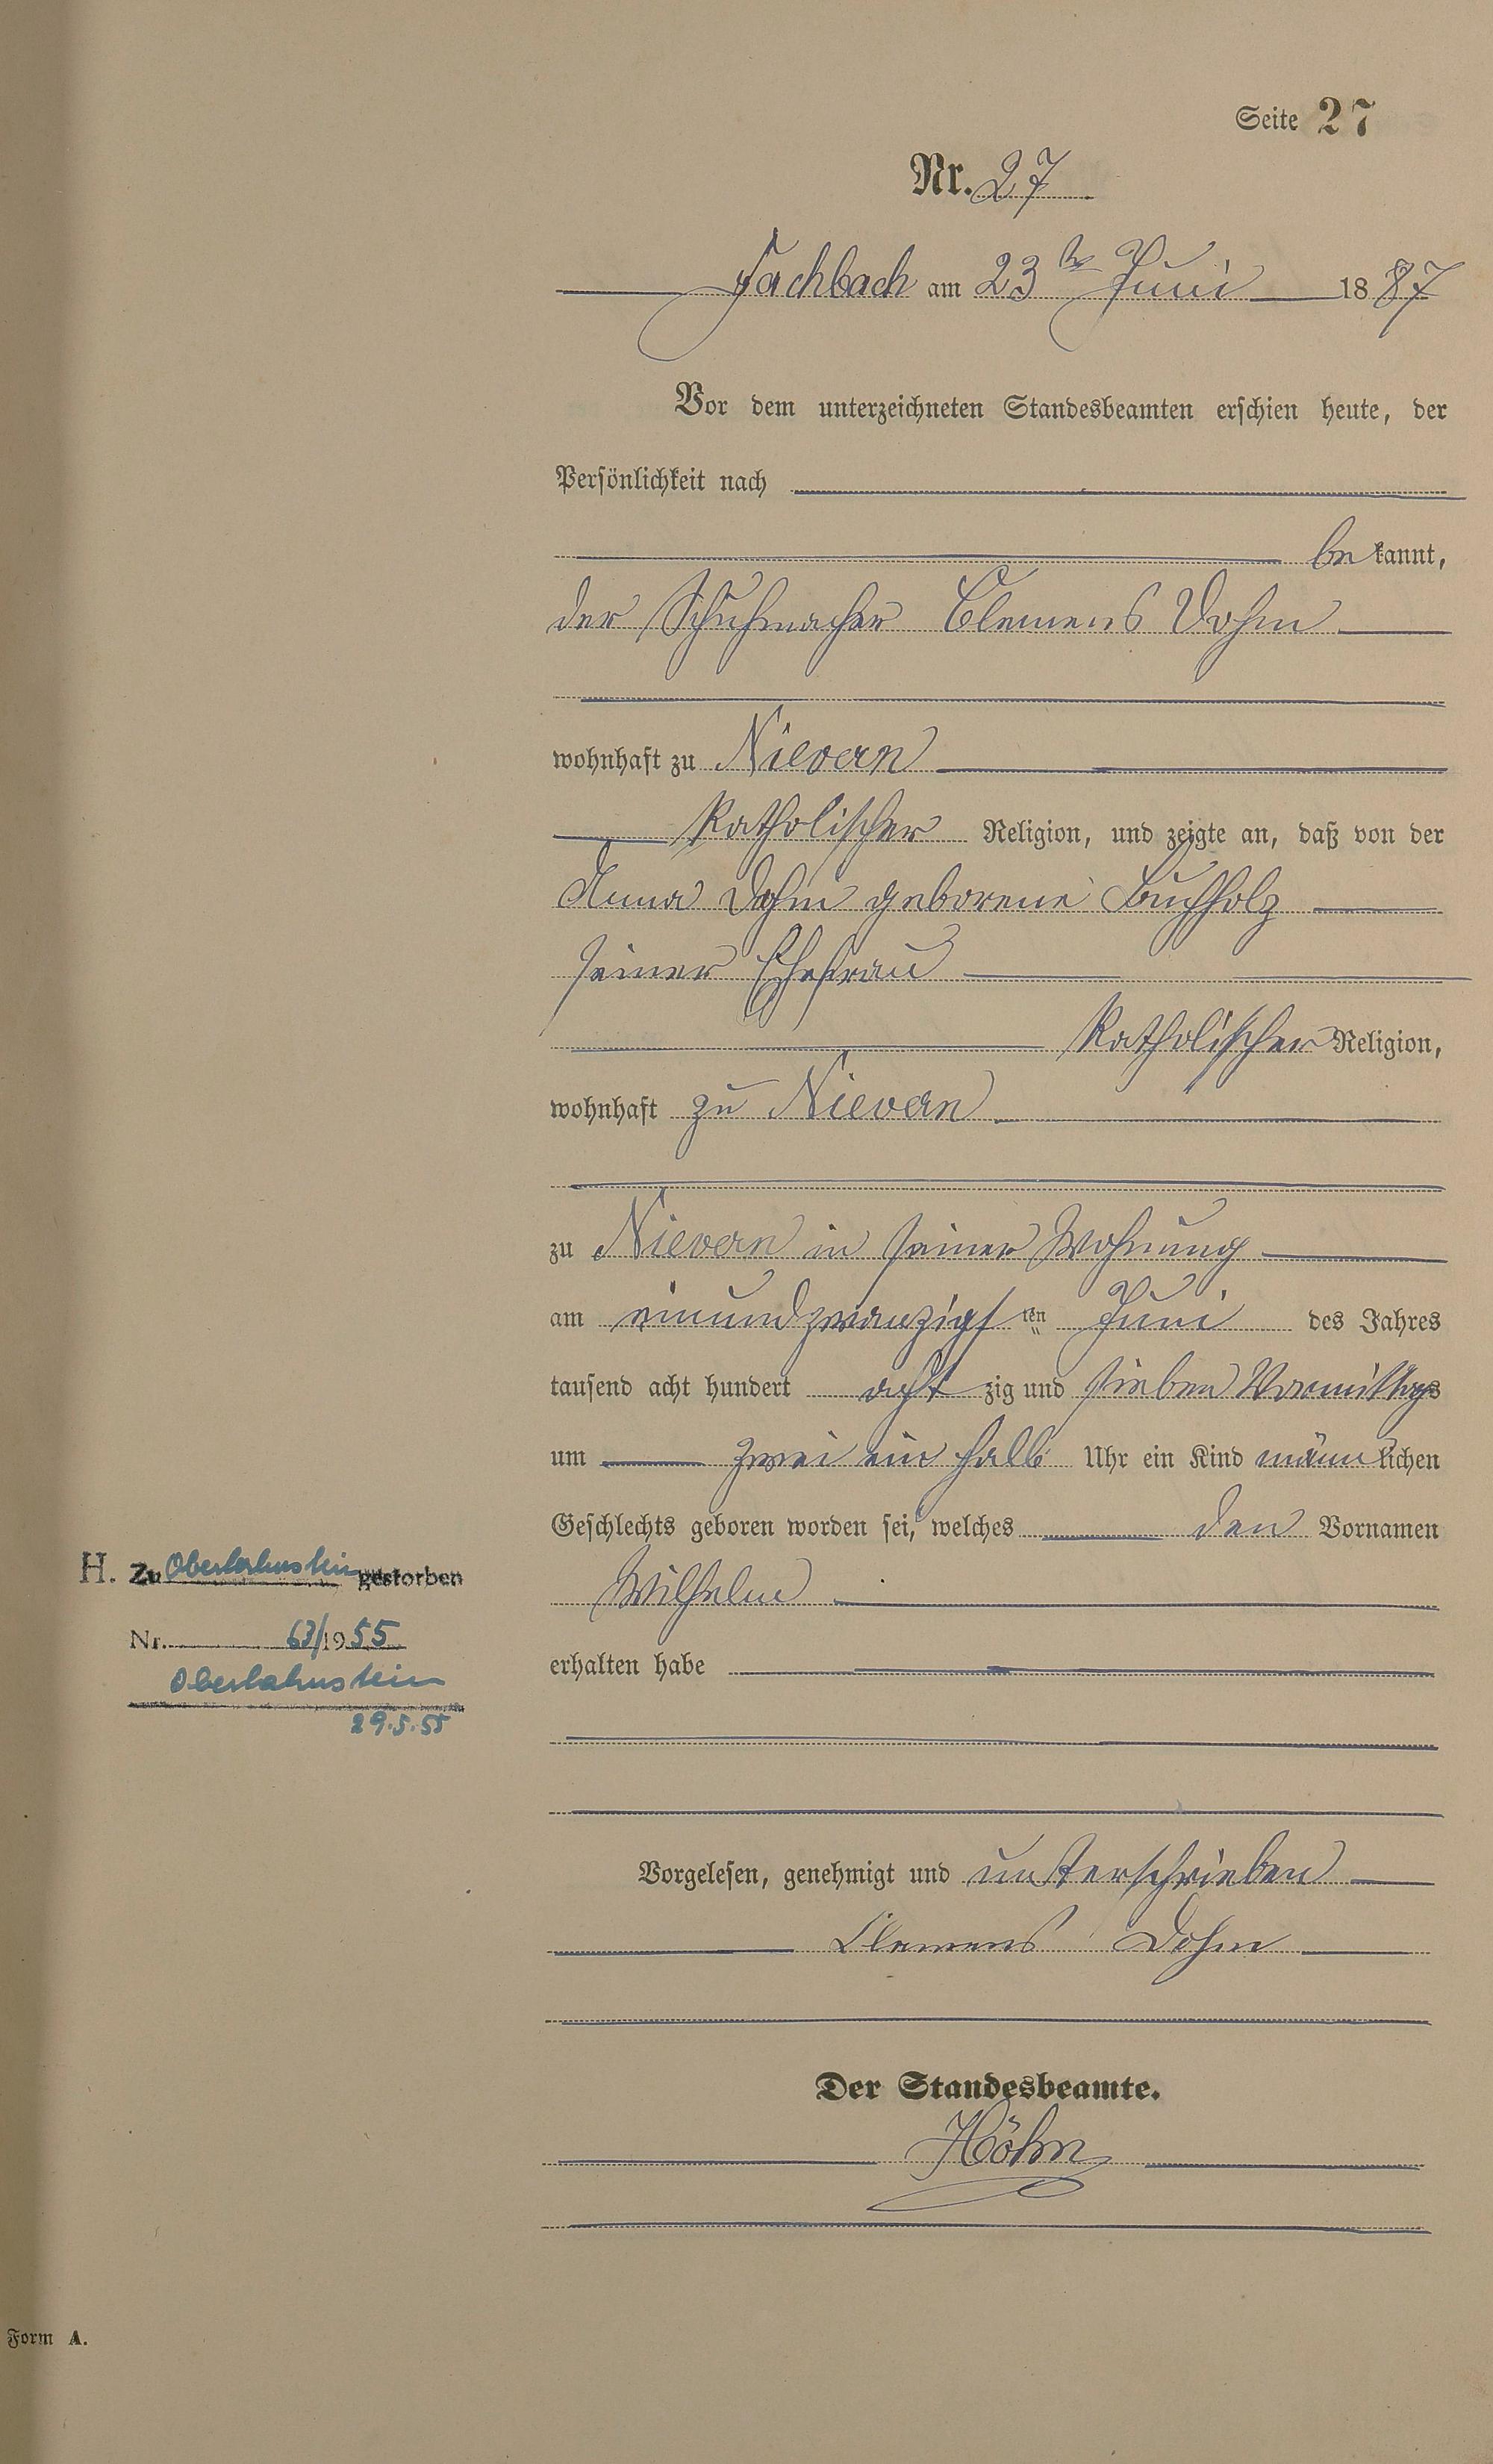 Seite 27
Nr. 27
Fachbach am 23ten Juni 1887
Vor dem unterzeichneten Standesbeamten erschien heute, der
Persönlichkeit nach
bekannt,
der Schuhmacher Clemens Dohm
wohnhaft zu Nievern
katholischer Religion, und zeigte an, daß von der
Anna Dohm geborene Buchholz
seiner Ehefrau
katholischer Religion,
wohnhaft zu Nievern
zu Nievern in seiner Wohnung
am einundzwanzigsten Juni des Jahres
tausend acht hundert achtzig und sieben Vormittags
um zwei ein halb Uhr ein Kind männlichen
Geschlechts geboren worden sei, welches den Vornamen
Wilhelm
erhalten habe
Vorgelesen, genehmigt und unterschrieben
Clemens Dohm
Der Standesbeamte.
Höhn
H. Zu Oberlahnstein gestorben
Nr. 63/1955
Oberlahnstein
29.5.55
Form A.